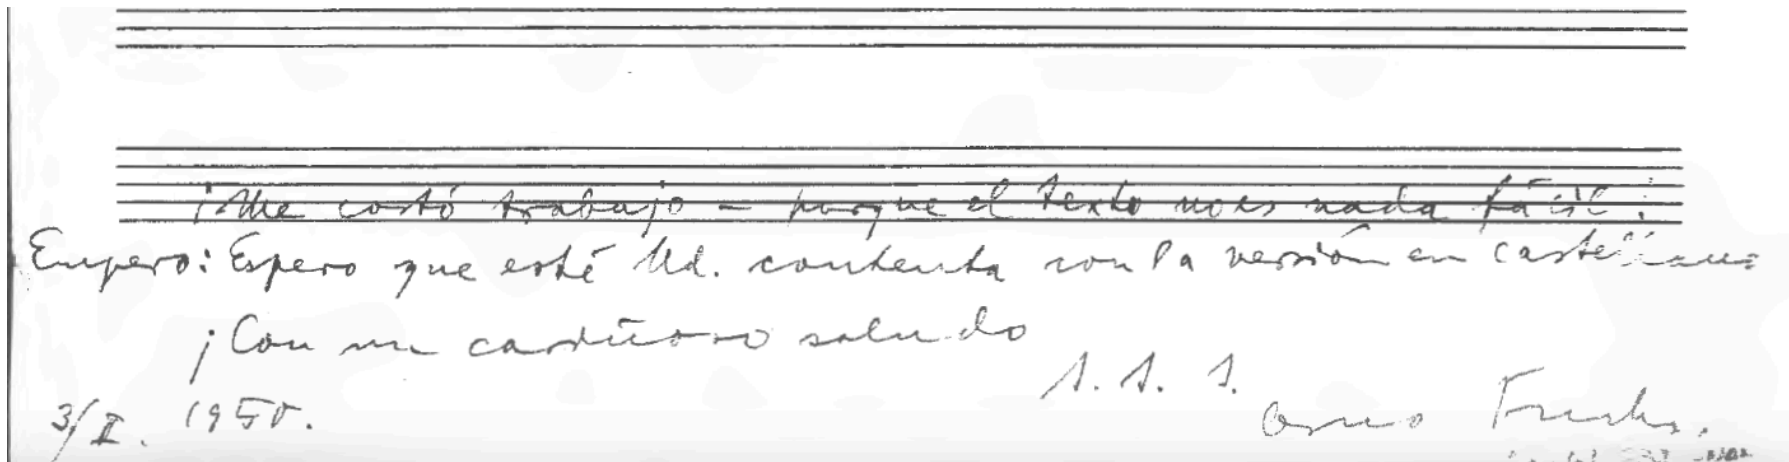 ¡Me costó trabajo – porque el texto no es nada fácil!
Empero: Espero que esté Ud. contenta con la versión en castellano
¡Con un cariñoso saludo
s. s. s.
Arno Fuchs.
3/II. 1950.